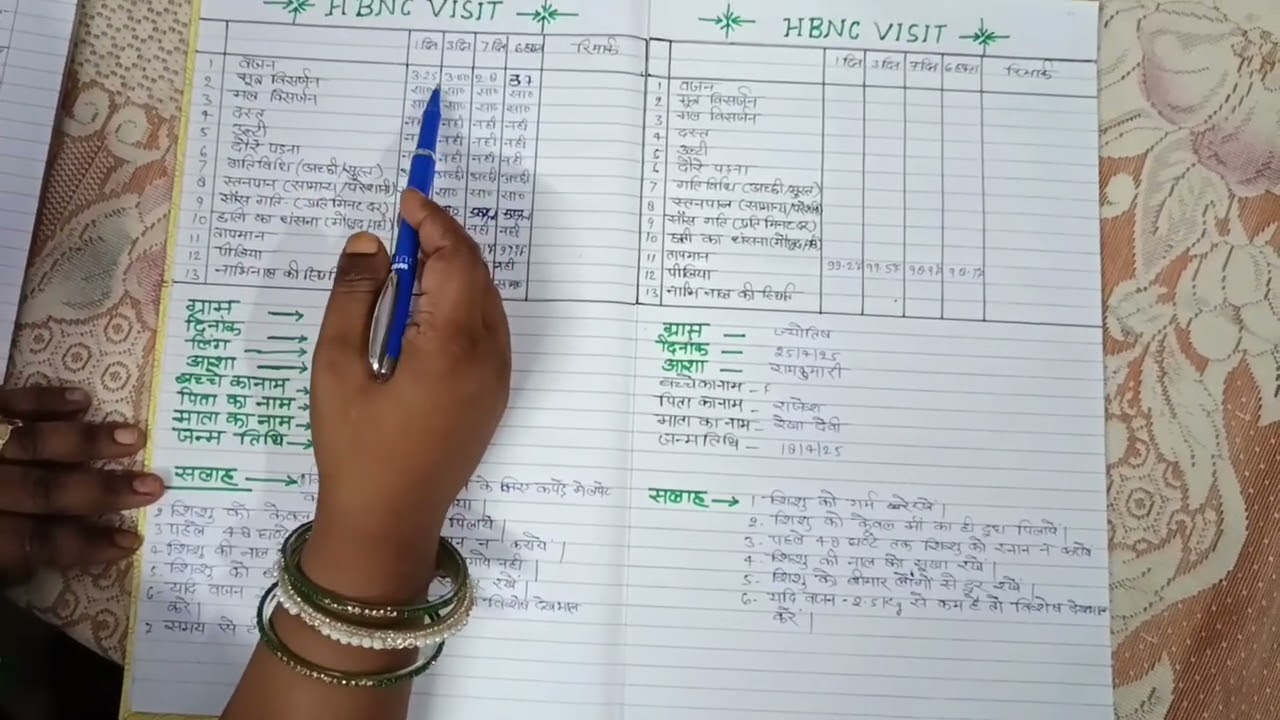 HBNC VISIT
1दिन 3दिन 7दिन रिमार्क
1 वजन 3.25 3.00 2.8 3.7
2 मूत्र विसर्जन सा० सा० सा० सा०
3 मल विसर्जन सा० सा० सा०
4 दस्त नही नही नही
5 उल्टी नही नही नही
6 दौरे पड़ना नही नही नही
7 गतिविधि (अच्छी/सुस्त) अच्छी अच्छी अच्छी
8 स्तनपान (सामान्य/परेशानी) सा० सा० सा०
9 साँस गति- (प्रति मिनट दर)
10 छाती का धंसना (मौजूद/नही) नही नही
11 तापमान
12 पीलिया नही
13 नाभिनाल की स्थिति
ग्राम →
दिनांक →
लिंग →
आशा →
बच्चे का नाम →
पिता का नाम →
माता का नाम →
जन्म तिथि →
सलाह → के लिए कपड़े में लपेट
2 शिशु को केवल पिलाये |
3 पहले 48 घण्टे न कराये |
4. शिशु की नाल नही |
5. शिशु को रखें |
6- यदि वजन विशेष देखभाल
करें |
7 समय से
HBNC VISIT
1दिन 3दिन 7दिन 6 हफ्ता रिमार्क
1 वजन
2 मूत्र विसर्जन
3 मल विसर्जन
4 दस्त
5 उल्टी
6 दौरे पड़ना
7 गतिविधि (अच्छी/सुस्त)
8 स्तनपान (सामान्य/परेशानी)
9 साँस गति (प्रति मिनट दर)
10 छाती का धंसना (मौजूद/नही)
11 तापमान
12 पीलिया
13 नाभि नाल की स्थिति
ग्राम – ज्योतिष
दिनांक – 25/4/25
आशा – रामकुमारी
बच्चे का नाम –
पिता का नाम – राजेश
माता का नाम – रेखा देवी
जन्मतिथि – 18/4/25
सलाह → 1 शिशु को गर्म रखें |
2. शिशु को केवल माँ का ही दूध पिलाये |
3. पहले 48 घण्टे तक शिशु को स्नान न कराये
4. शिशु की नाल को सूखा रखें |
5. शिशु को बीमार लोगों से दूर रखें |
6- यदि वजन - 2.5 Kg से कम है तो विशेष देखभाल
करें |